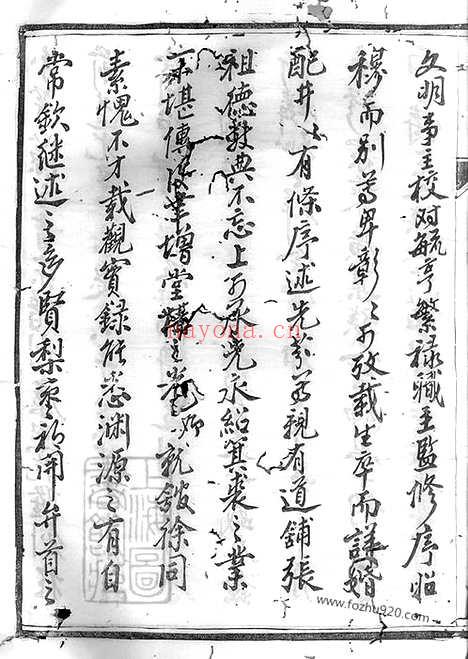 文明事主校对毓亭繁禄職主監修序昭
穆而别尊卑彰〻可攷載生卒而詳婚
配井〻有條序述先芬尊親有道鋪張
祖德数典不忘上可承先永紹箕裘之業
堪傳後筆增堂構之光鄉航餿徐同
素愧不才載觀實録能悉渊源之有自
常欽继述之多賢梨枣初開弁首之
nayona.cn
www.fozhu920.com